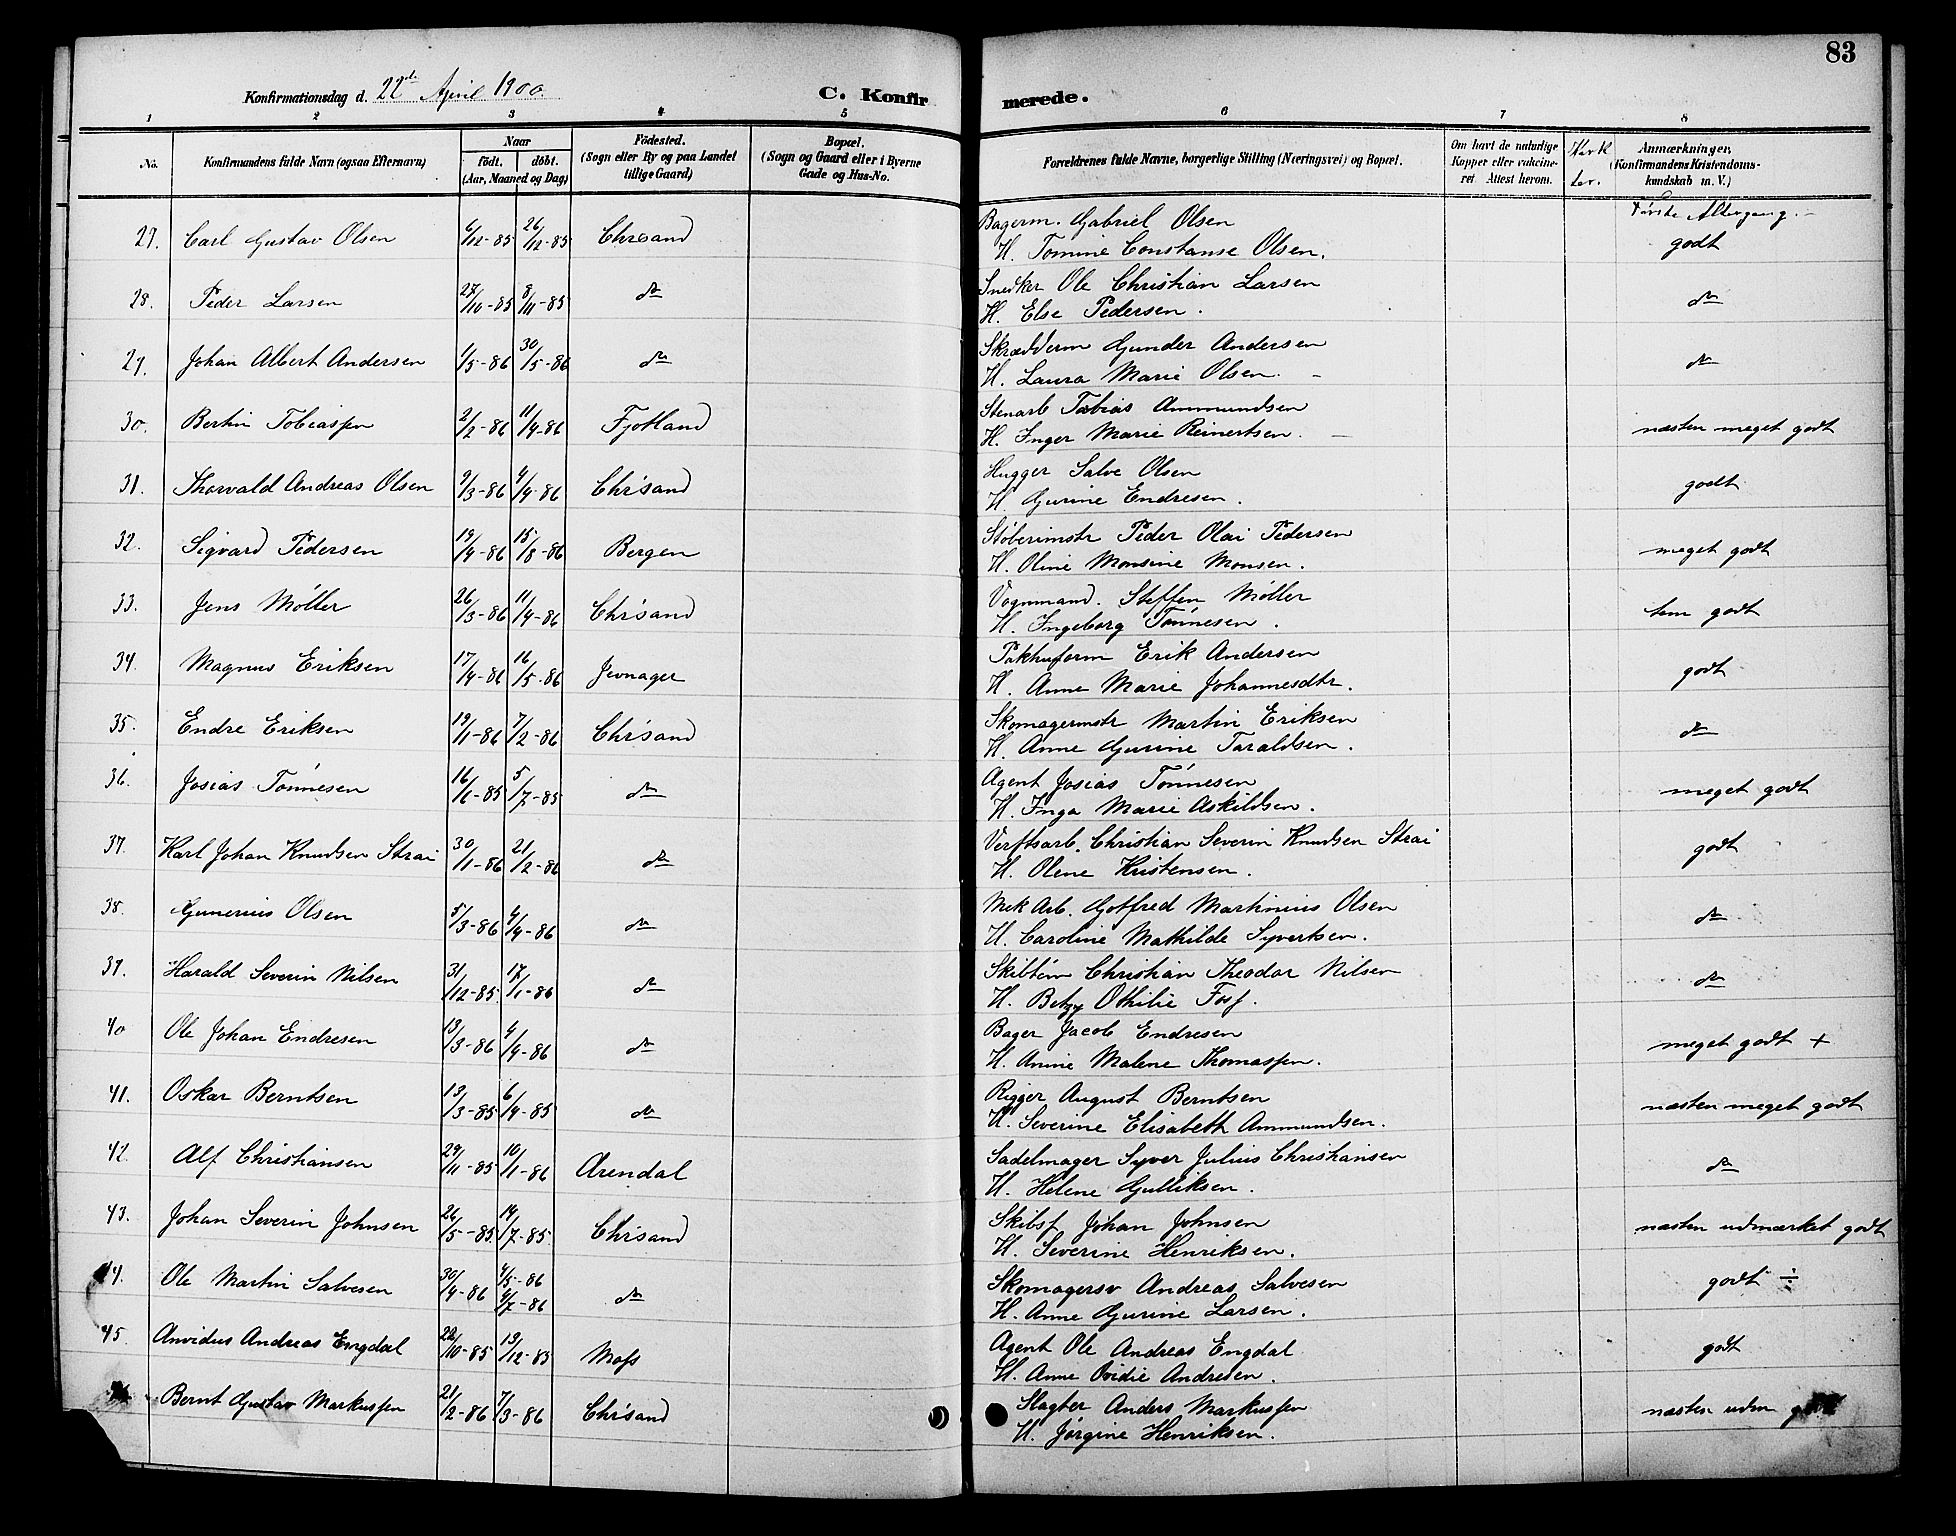 83
Konfirmationsdag d. 22de April 1900.
C. Konfirmerede.
1 2 3 4 5 6 7 8
No. Konfirmandens fulde Navn (ogsaa Efternavn) Naar födt. döbt. (Aar, Maaned og Dag) Födested. (Sogn eller By og paa Landet tillige Gaard) Bopæl. (Sogn og Gaard eller i Byerne Gade og Hus-No. Forældrenes fulde Navne, borgerlige Stilling (Næringsvei) og Bopæl. Om havt de naturlige Kopper eller vakcineret. Attest herom. Anmærkninger, (Konfirmandens Kristendomskundskab m. V.)
Første Altergang.
27. Carl Gustav Olsen 6/12-85 26/12-85 Chrsand Bagerm. Gabriel Olsen godt
H. Tomine Constanse Olsen.
28. Peder Larsen 27/10-85 8/11-85 do Snedker Ole Christian Larsen do
H. Else Pedersen.
29. Johan Albert Andersen 1/5-86 30/5-86 do Skrædderm Gunder Andersen do
H. Laura Marie Olsen.
30. Bertin Tobiassen 2/2-86 11/4-86 Fjotland Stenarb Tobias Ammundsen næsten meget godt
H. Inger Marie Reinertsen.
31. Thorvald Andreas Olsen 9/3-86 4/4-86 Chrsand Hugger Salve Olsen godt
H. Gurine Endresen.
32. Sigvard Pedersen 19/4-86 15/8-86 Bergen Støberimstr Peder Olai Pedersen meget godt
H. Oline Monsine Monsen.
33. Jens Möller 26/3-86 11/4-86 Chrsand Vognmand. Steffen Møller tem godt
H. Ingeborg Tønnesen.
34. Magnus Eriksen 17/4-86 16/5-86 Jevnager Pakhusform Erik Andersen godt
H. Anne Marie Johannesdtr.
35. Endre Eriksen 19/1-86 7/2-86 Chrsand Skomagermstr Martin Eriksen do
H. Anne Gurine Taraldsen.
36. Josias Tönnesen 16/6-85 5/7-85 do Agent Josias Tönnesen meget godt
H. Inga Marie Askildsen.
37. Karl Johan Knudsen Strai 30/1-86 21/2-86 do Verftsarb. Christian Severin Knudsen Strai godt
H. Olene Kristensen.
38. Gunerius Olsen 5/3-86 4/4-86 do Mek Arb. Gotfred Martinius Olsen do
H. Caroline Mathilde Syvertsen.
39. Harald Severin Nilsen 31/12-85 17/1-86 do Skibtøm Christian Theodor Nilsen do
H. Betzy Othilie Foss.
40 Ole Johan Endresen 13/3-86 4/4-86 do Bager Jacob Endresen meget godt +
H. Anine Malene Thomassen.
41. Oskar Berntsen 13/3-85 6/4-85 do Rigger August Berntsen næsten meget godt
H. Severine Elisabeth Ammundsen.
42. Alf Christiansen 29/11-85 10/1-86 Arendal Sadelmager Syver Julius Christiansen do
H. Helene Gulliksen.
43. Johan Severin Johnsen 26/5-85 14/7-85 Chrsand Skibsf Johan Johnsen næsten udmærket godt
H. Severine Henriksen.
44. Ole Martin Salvesen 30/4-86 4/5-86 4/7-86 do Skomagersv Andreas Salvesen godt ÷
H. Anne Gurine Larsen.
45. Anvidus Andreas Engdal 22/10-85 13/12-85 Moss Agent Ole Andreas Engdal godt
H. Anne Ovidie Andresen.
Bernt Gustav Markussen 21/2-86 7/3-86 Chrsand Slagter Anders Markussen næsten udm
H. Jørgine Henriksen.